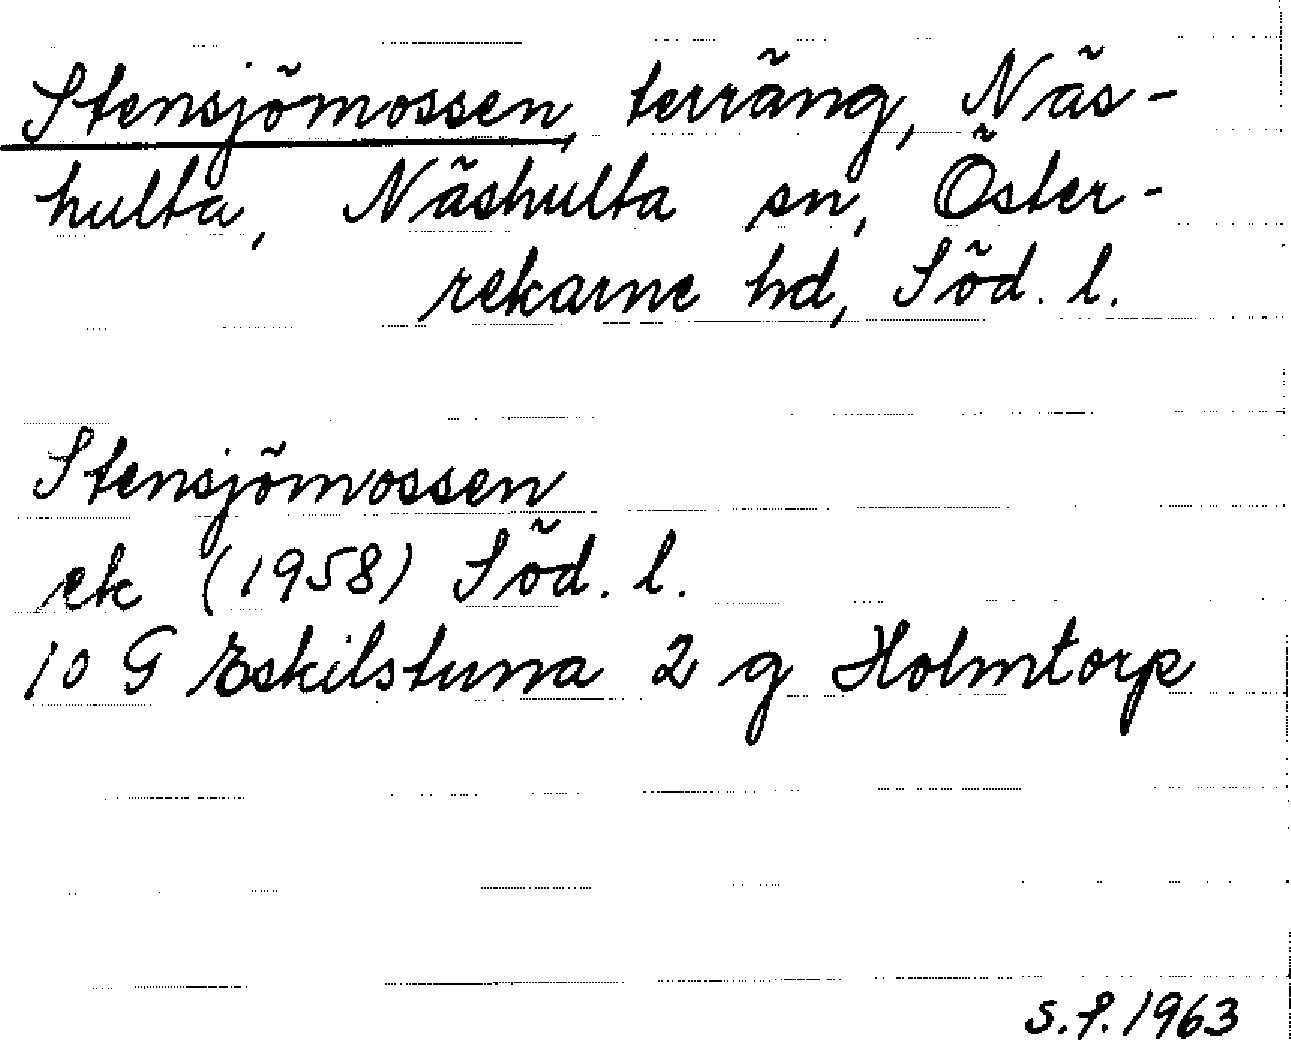 Stensjömossen, terräng, Näs-
hulta, Näshulta sn, Öster-
rekarne hd, Söd. l.
Stensjömossen
ek (1958) Söd. l.
10 G Eskilstuna 2 g Holmtorp
S.F. 1963